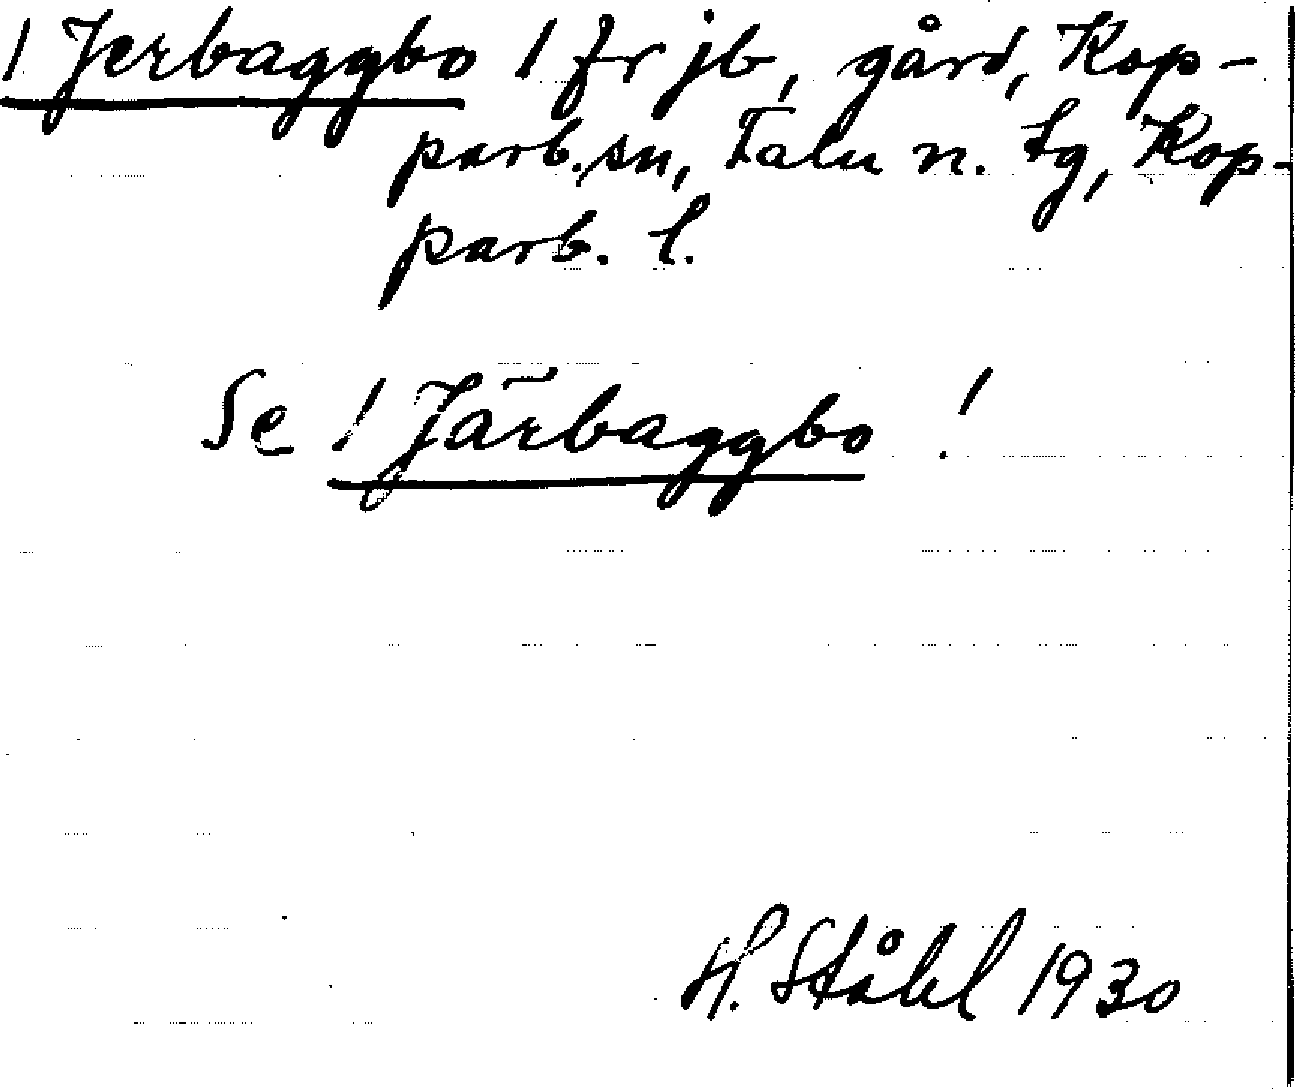 / Jerbaggbo / fr jb, gård, Kop-
parb. sn, Falu n. tg, Kop-
parb. l.
Se / Järbaggbo /.
H. Ståhl 1930